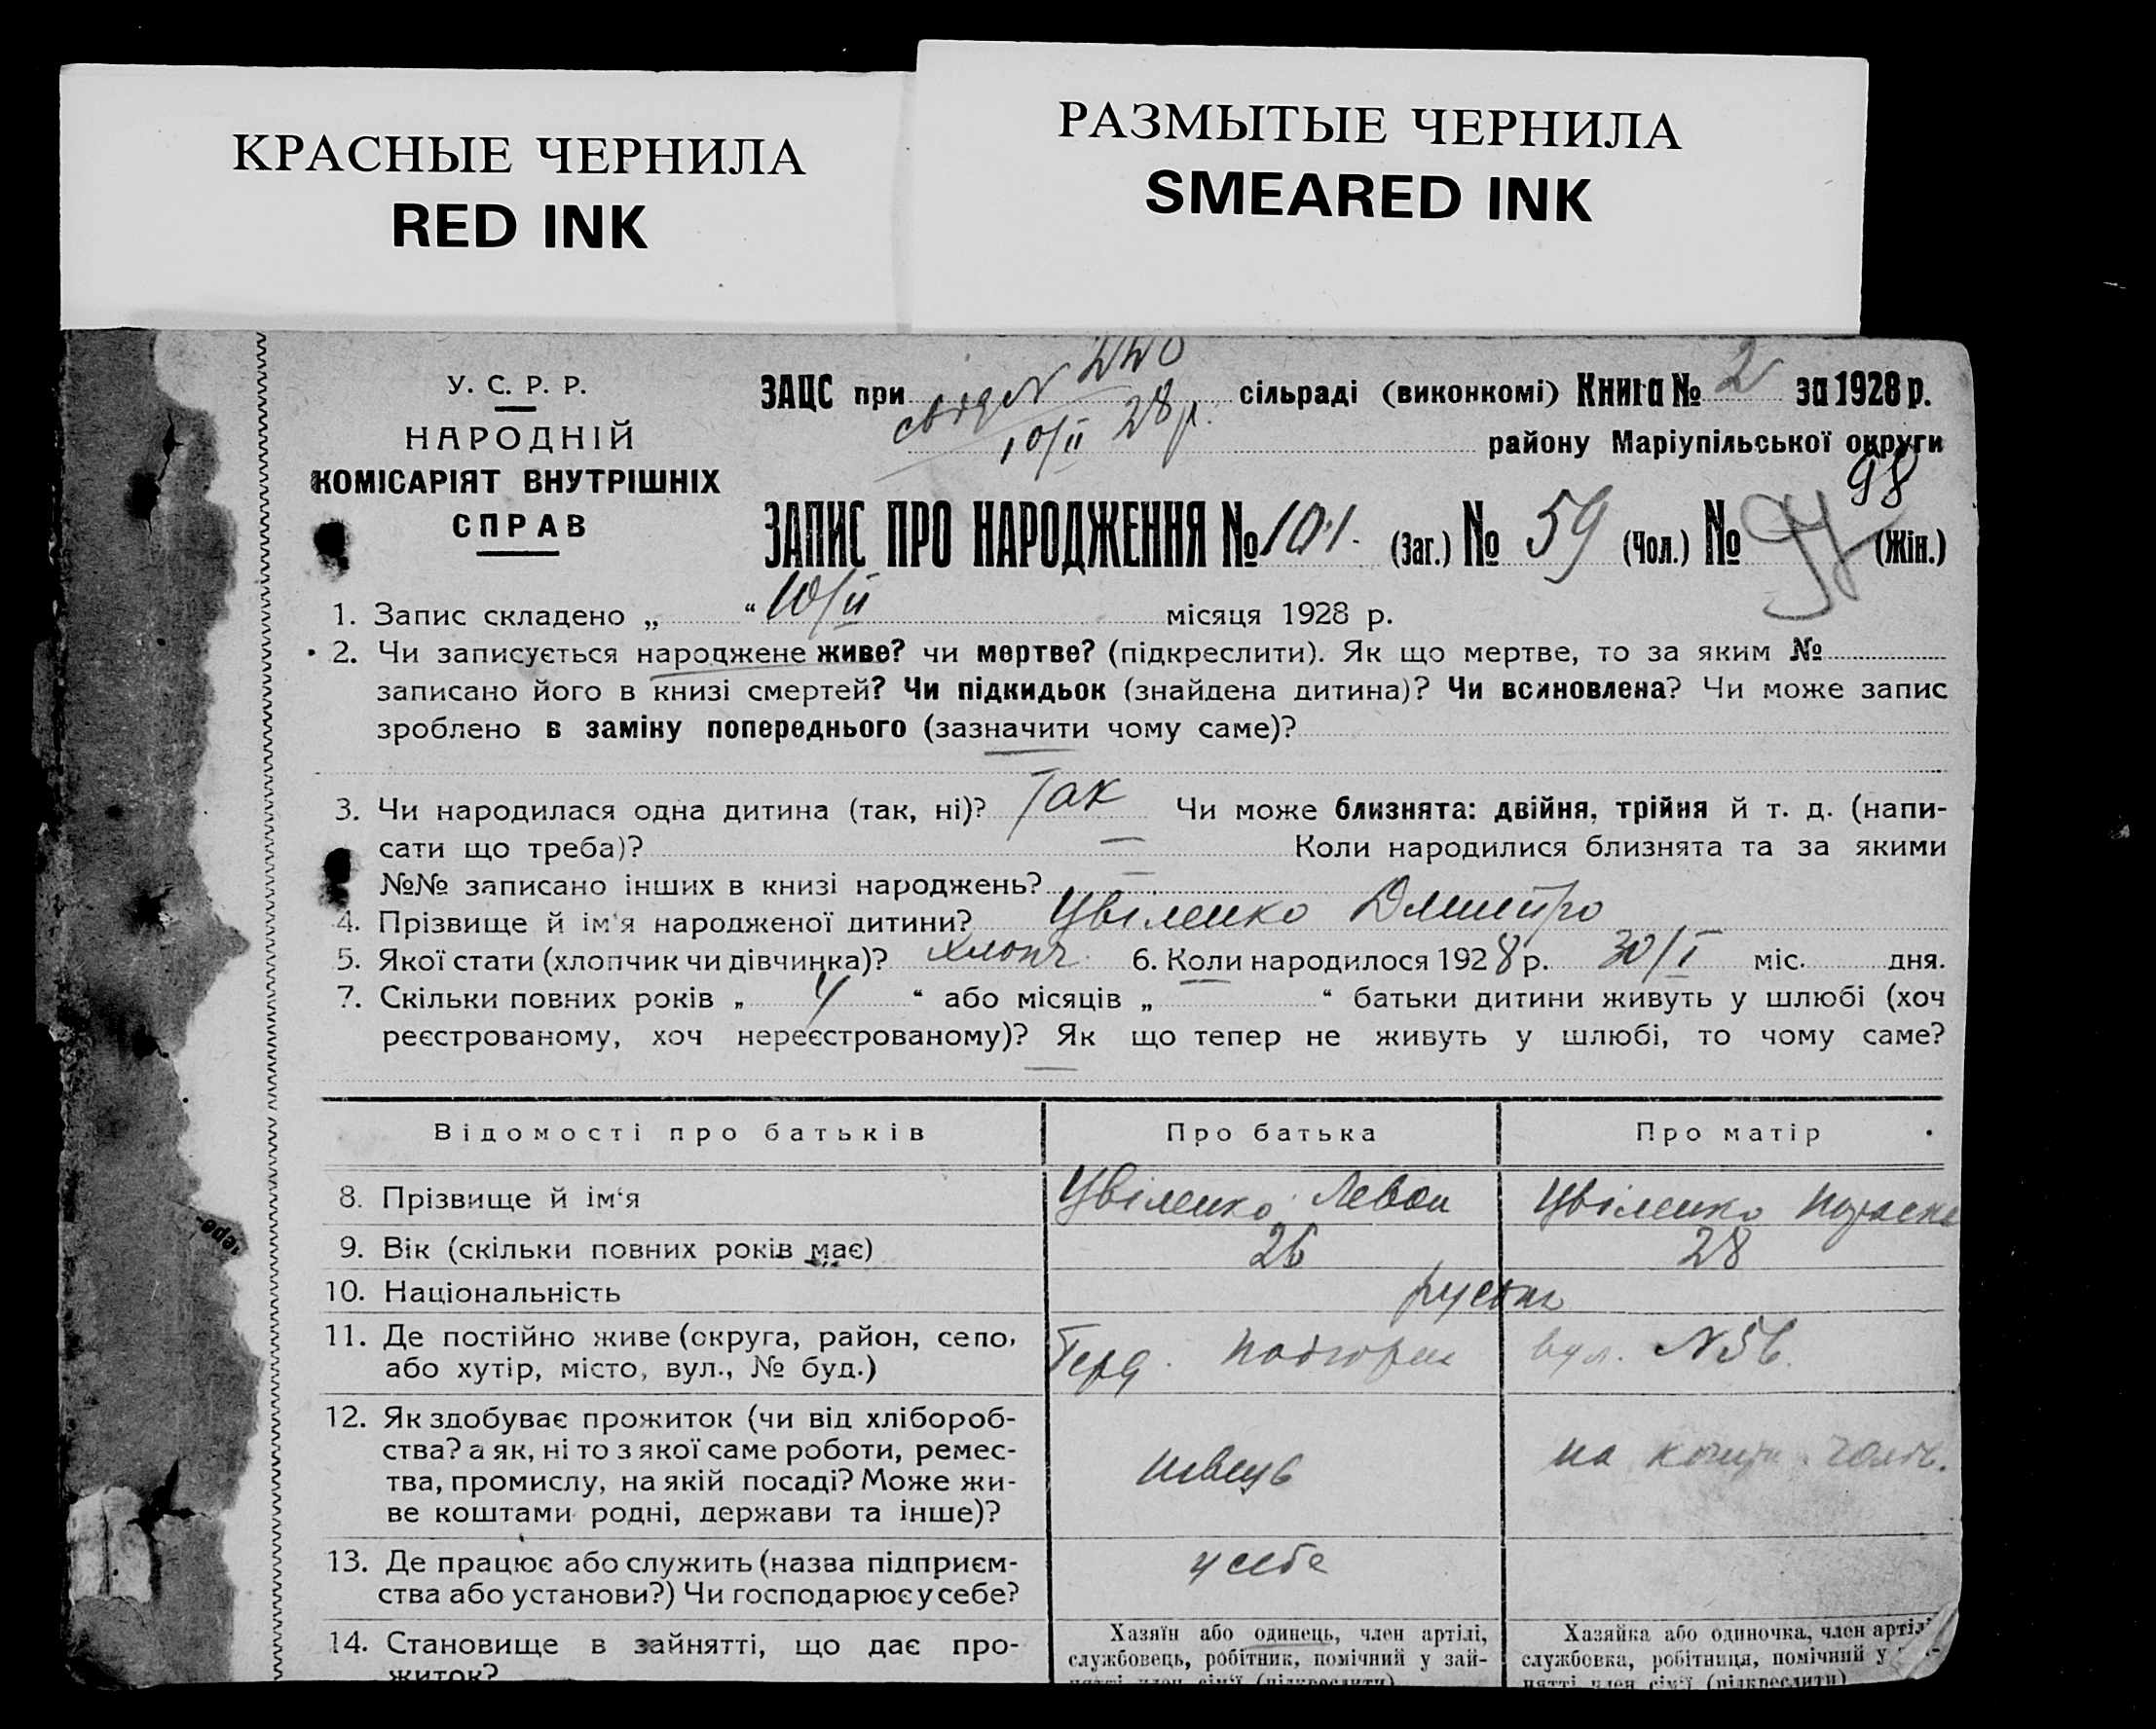 КРАСНЫЕ ЧЕРНИЛА
RED INK
РАЗМЫТЫЕ ЧЕРНИЛА
SMEARED INK
У. С. Р. Р.
НАРОДНІЙ
КОМІСАРІЯТ ВНУТРІШНІХ
СПРАВ
220
ЗАЦС при свід N сільраді (виконкомі) Книга № 2 за 1928 р.
10/II 28 р. району Маріупільської округи
98
ЗАПИС ПРО НАРОДЖЕННЯ № 101. (Заг.) № 59 (Чол.) № (Жін.)
1. Запис складено „ “ 10/II місяця 1928 р.
2. Чи записується народжене живе? чи мертве? (підкреслити). Як що мертве, то за яким №
записано його в книзі смертей? Чи підкидьок (знайдена дитина)? Чи всиновлена? Чи може запис
зроблено в заміну попереднього (зазначити чому саме)?
3. Чи народилася одна дитина (так, ні)? Так Чи може близнята: двійня, трійня й т. д. (напи-
сати що треба)? — Коли народилися близнята та за якими
№№ записано інших в книзі народжень? —
4. Прізвище й ім'я народженої дитини? Цвіленко Дмитро
5. Якої стати (хлопчик чи дівчинка)? хлопч. 6. Коли народилося 1928 р. 30/I міс. дня.
7. Скільки повних років „ 4 “ або місяців „ “ батьки дитини живуть у шлюбі (хоч
реєстрованому, хоч нереєстрованому)? Як що тепер не живуть у шлюбі, то чому саме?
—
Відомості про батьків Про батька Про матір
8. Прізвище й ім'я Цвіленко Левон Цвіленко
9. Вік (скільки повних років має) 26 28
10. Національність руськ
11. Де постійно живе (округа, район, село,
або хутір, місто, вул., № буд.) вул. N 56.
12. Як здобуває прожиток (чи від хлібороб-
ства? а як, ні то з якої саме роботи, ремес-
тва, промислу, на якій посаді? Може жи-
ве коштами родні, держави та інше)?
швець
на кошти чолов.
13. Де працює або служить (назва підприєм-
ства або установи?) Чи господарює у себе?
у себе
14. Становище в зайнятті, що дає про-
житок?
Хазяїн або одинець, член артілі,
службовець, робітник, помічний у зай-
нятті член сім'ї (підкреслити)
Хазяйка або одиночка, член артілі
службовка, робітниця, помічний у
нятті член сім'ї (підкреслити)